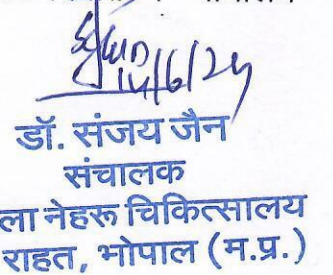 14/6/24
डॉ. संजय जैन
संचालक
ला नेहरू चिकित्सालय
राहत, भोपाल (म.प्र.)